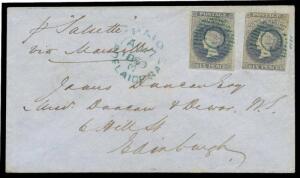 p Salsette
via Marseilles
PAID
ADELAIDE S.A.
POSTAGE
SIX PENCE
POSTAGE
SIX PENCE
James Duncan Esq
Mess Duncan & Dewar, W.S.
6 Hill St
Edinburgh